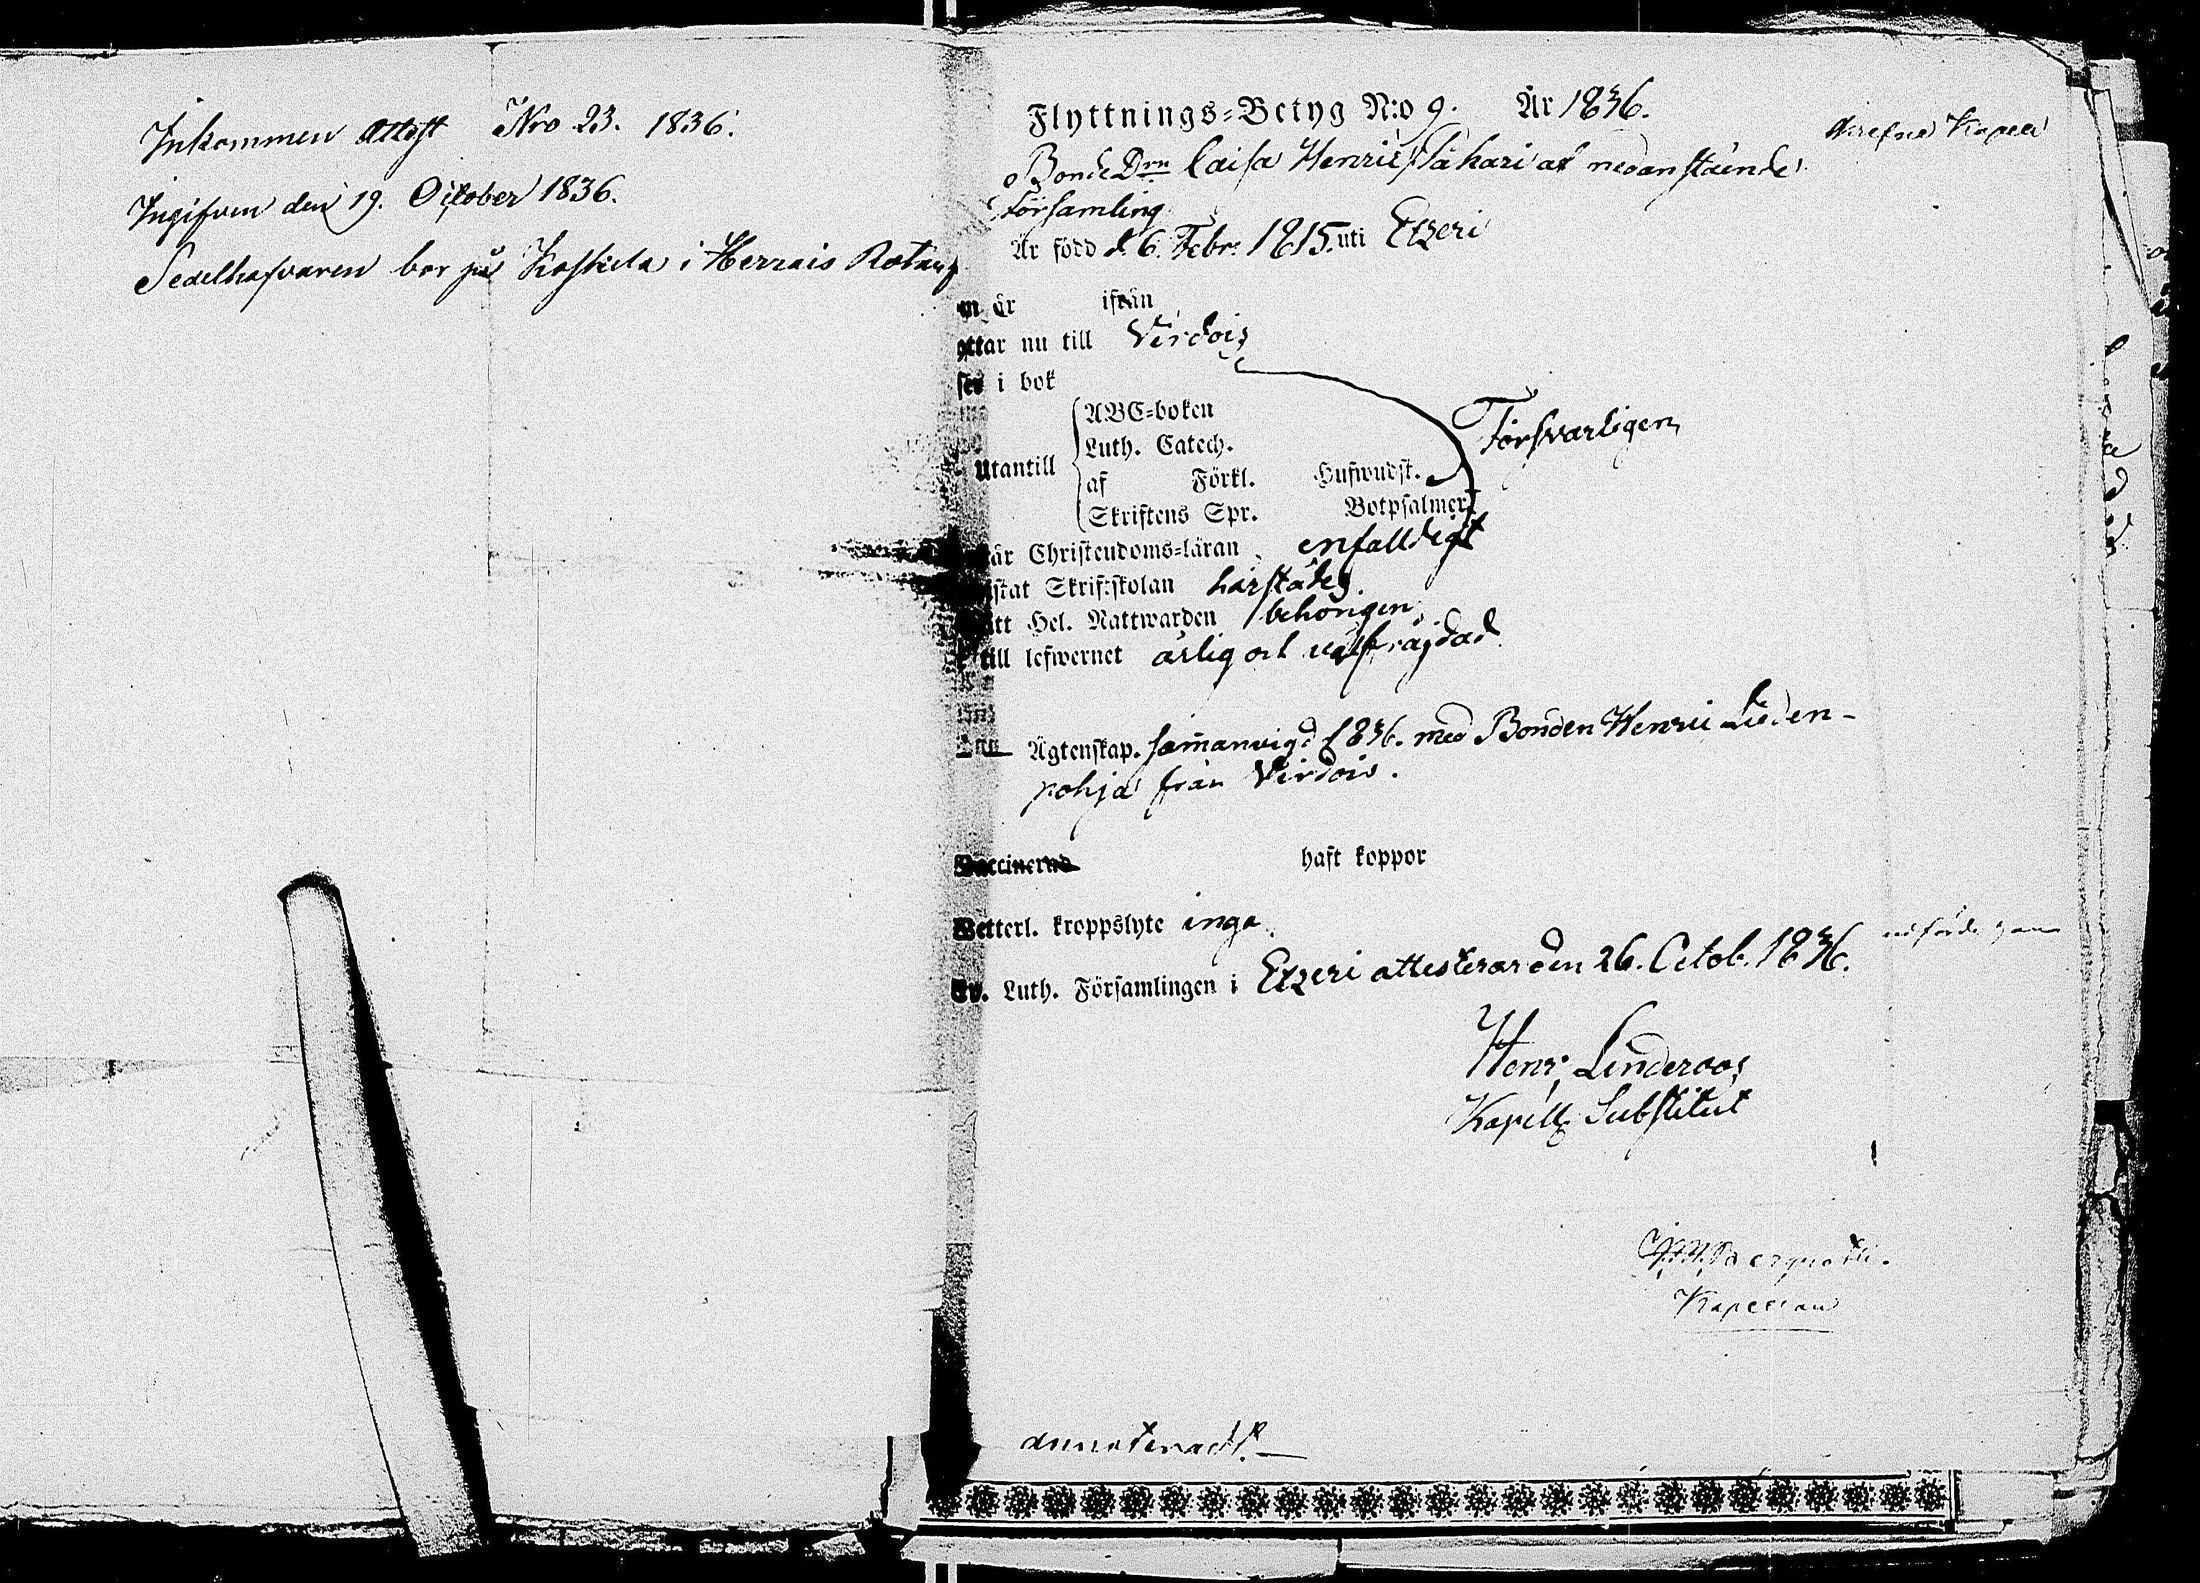 Inkommen Attest Nro 23. 1836.
Ingifven den 19. October 1836.
Sedelhafvaren bor på Koskela i Herrais Rotan
Flyttnings-Betyg N:o 9. År 1836.
Bonde Drn Caisa Henricsd. Sahari af nedanstående
Församling
Är född d. 6. Febr. 1815. uti Etzeri
är ifrån
nu till Virdois
i bok
ABC-boken
Luth. Catech.
Utantill
Försvarligen
af Förkl. Hufwudst.
Skriftens Spr. Botpsalmer
Christendoms-läran enfalldigt
Skriftskolan härstädes.
Hel. Nattwarden behörigen,
till lefwernet ärlig och välfräjdad
Ägtenskap. sam̄anvigd 1836. med Bonden Henric Lieden-
pohja från Virdois.
Vaccinerad haft koppor
Wetterl. kroppslyte inga
Ev. Luth. Församlingen i Etzeri attesterar den 26. Octob. 1836.
Henr. Linderoos
Kapells Substitut
Kapellan